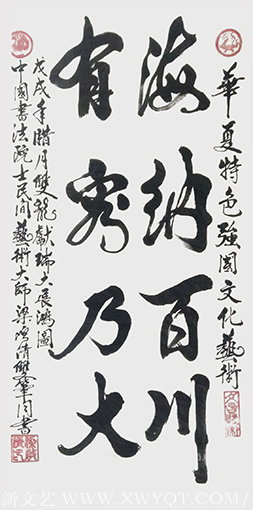 華夏特色強国文化藝術
海納百川
有容乃大
戊戌年腊月雙龍獻瑞大展鴻圖
中國書法院士民间藝術大師梁鸿清雙筆同書
新文艺 WWW.XWYQT.COM/